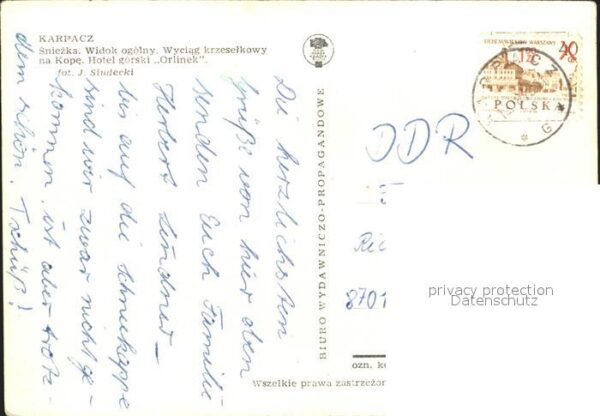 KARPACZ
Śnieżka. Widok ogólny. Wyciąg krzesełkowy
na Kopę. Hotel górski „Orlinek".
fot. J. Siudecki
Die herzlichsten
Grüße von hier oben
senden Euch Familie
Herbert Lindner –
bis auf die Schneekoppe
sind wir zwar nicht ge-
kommen, ist aber trotz-
dem schön. Tschüß!
BIURO WYDAWNICZO-PROPAGANDOWE
40
POLSKA
DDR
8701
privacy protection
Datenschutz
ozn.
Wszelkie prawa zastrzeżon